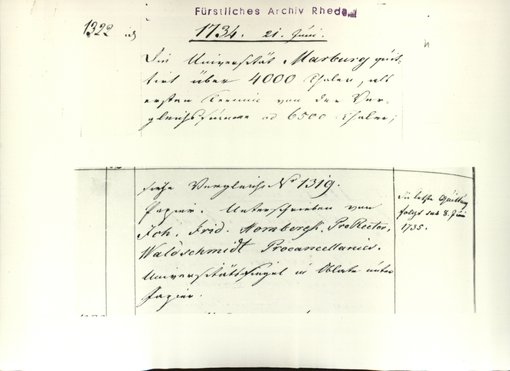 Fürstliches Archiv Rheda
1322
1734. 21. Juni.
Die Universität Marburg quit-
tirt über 4000 Thaler, als
ersten Termin von der Ver-
gleichssumme ad 6500 Thaler;
siehe Vergleich No 1319.
Papier. Unterschrieben von
Joh. Frid. Hombergk ProRector,
Waldschmidt Procancellarius.
Universitätssiegel in Oblate unter
Papier.
Die letzte Quittung
folgt sub 8. Juni
1735.